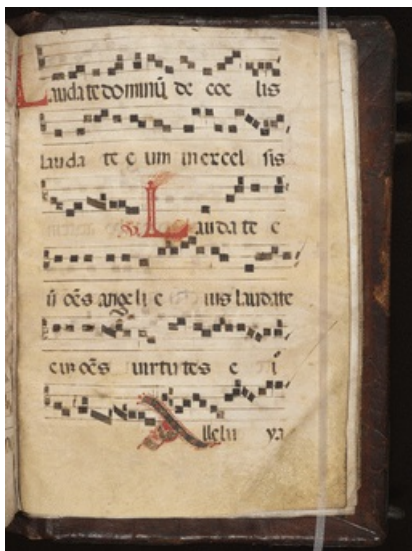 Laudate dominū de coe lis
lauda te e um in excel sis
℣ Laudate e
ū oēs angeli e ius laudate
eum oēs uirtutes e i
Allelu ya